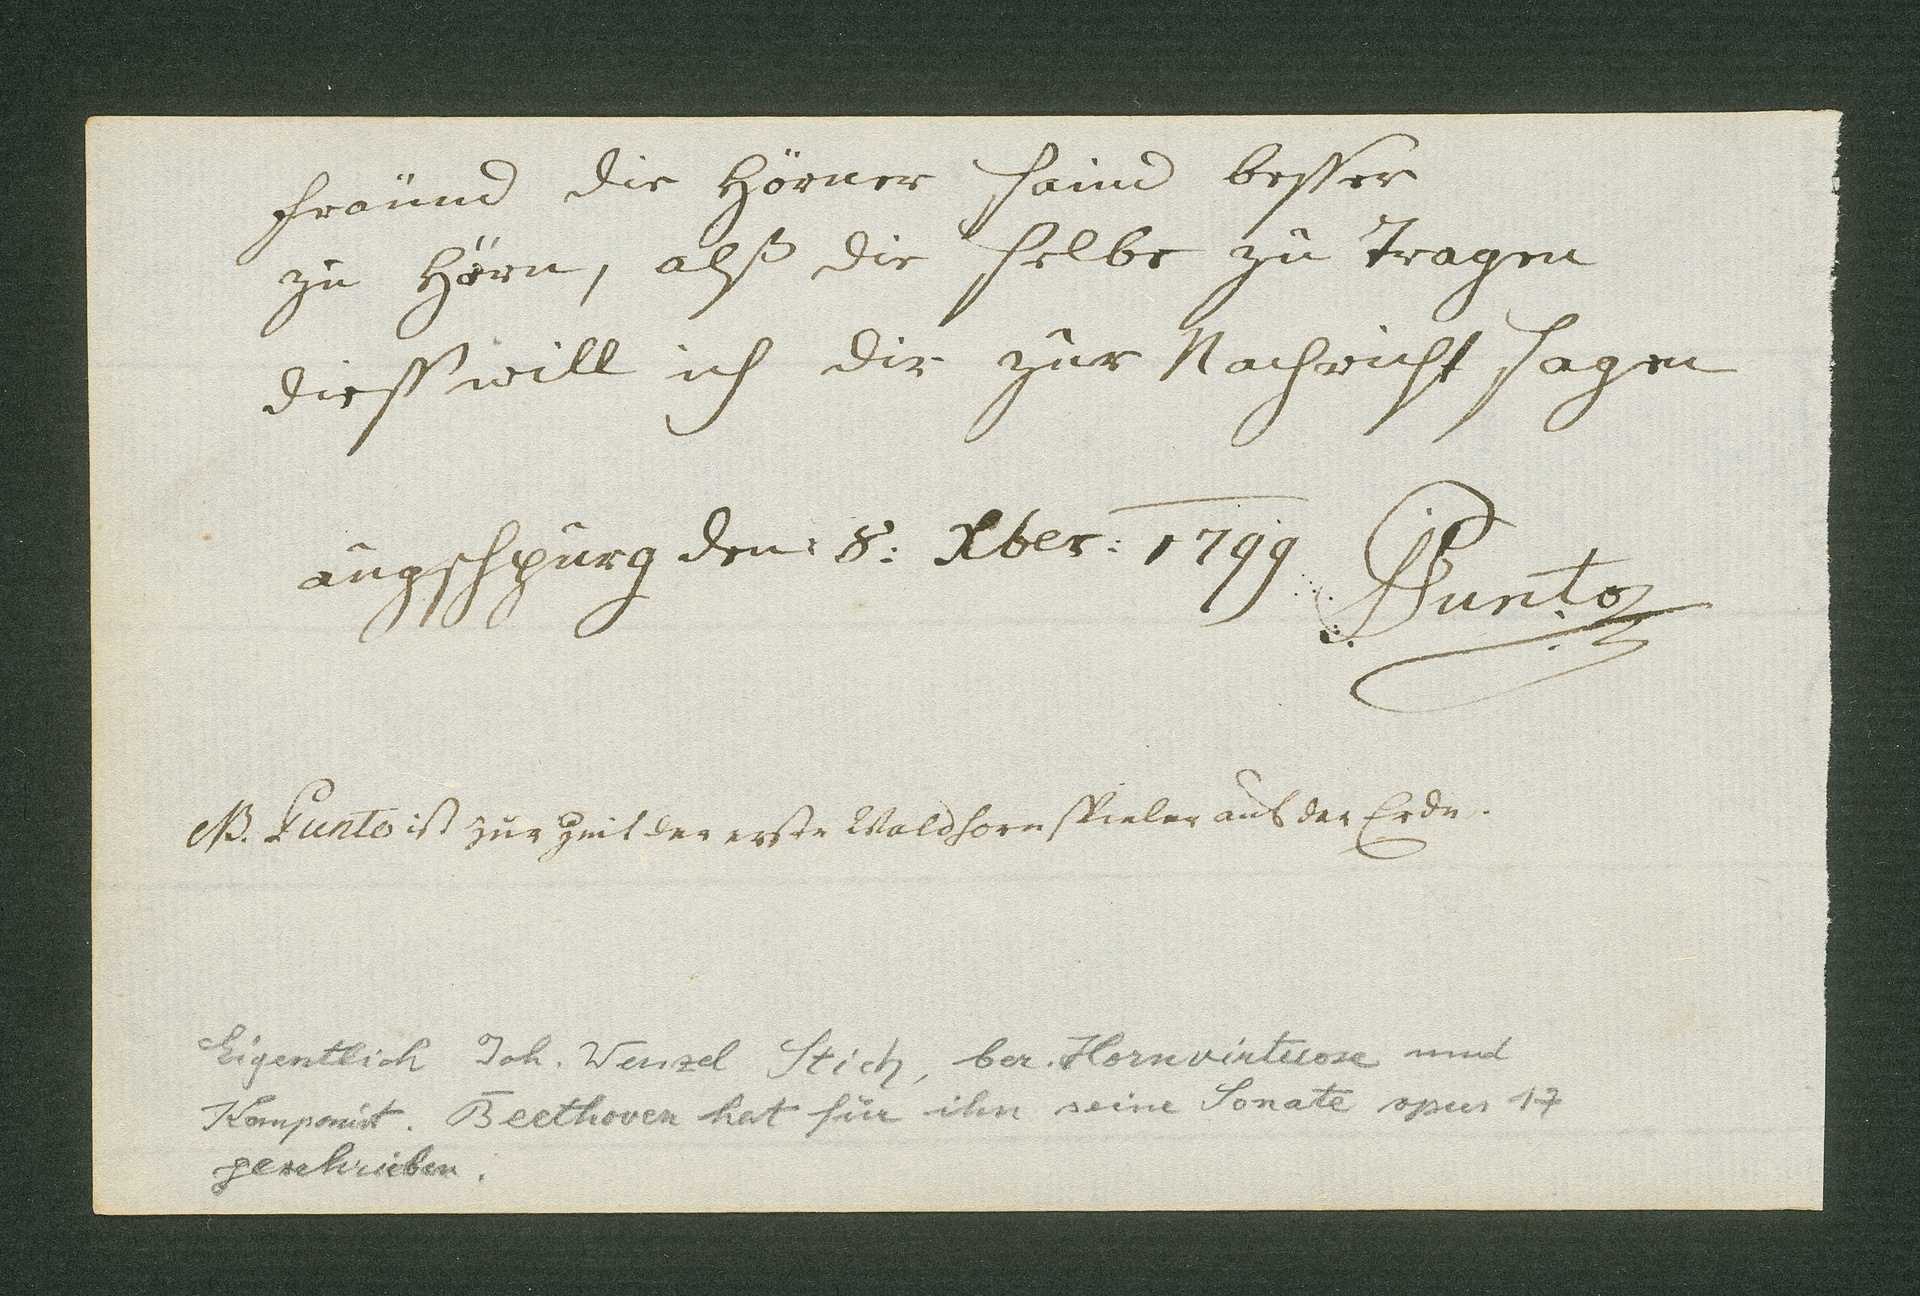 fräünd die Hörner saind besser
zu Hörn, alß die selbe zu Tragen
diess will ich dir zur Nachricht sagen
augschpurg den: 8: Xber: 1799 Punto
NB. Punto ist zur Zeit der erste Waldhornspieler auf der Erde.
Eigentlich Joh. Wenzel Stich, ber. Hornvirtuose und
Komponist. Beethoven hat für ihn seine Sonate opus 17
geschrieben.